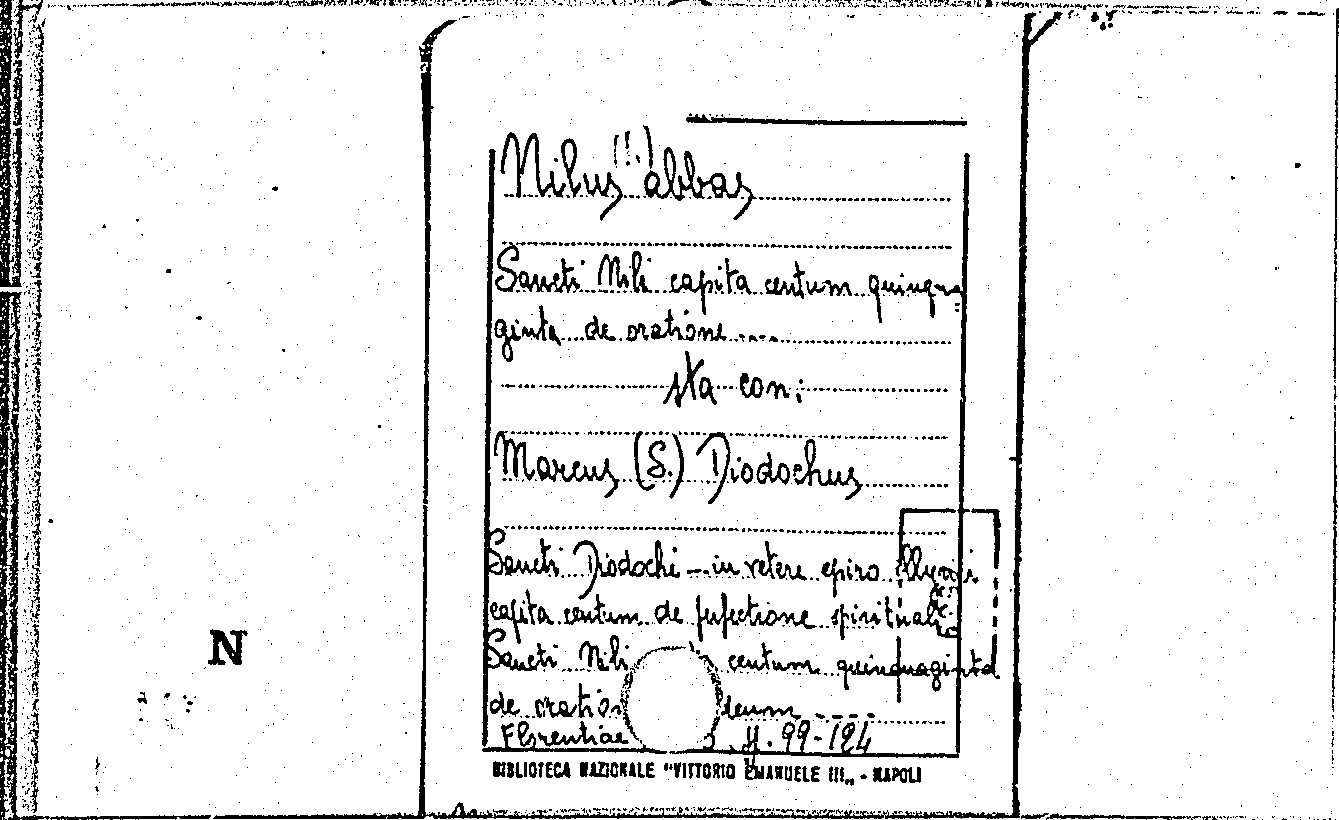 Nilus (!!) abbas
Sancti Nili capita centum quinqua=
ginta de oratione ....
sta con:
Marcus (S.) Diodochus
Sancti Diodochi - in vetere epiro Illyrici
capita centum de perfectione spirituali
Sancti Nili centum quinquaginta
de
Florentiae ff. 99-124
BIBLIOTECA NAZIONALE "VITTORIO EMANUELE III„ - NAPOLI
N